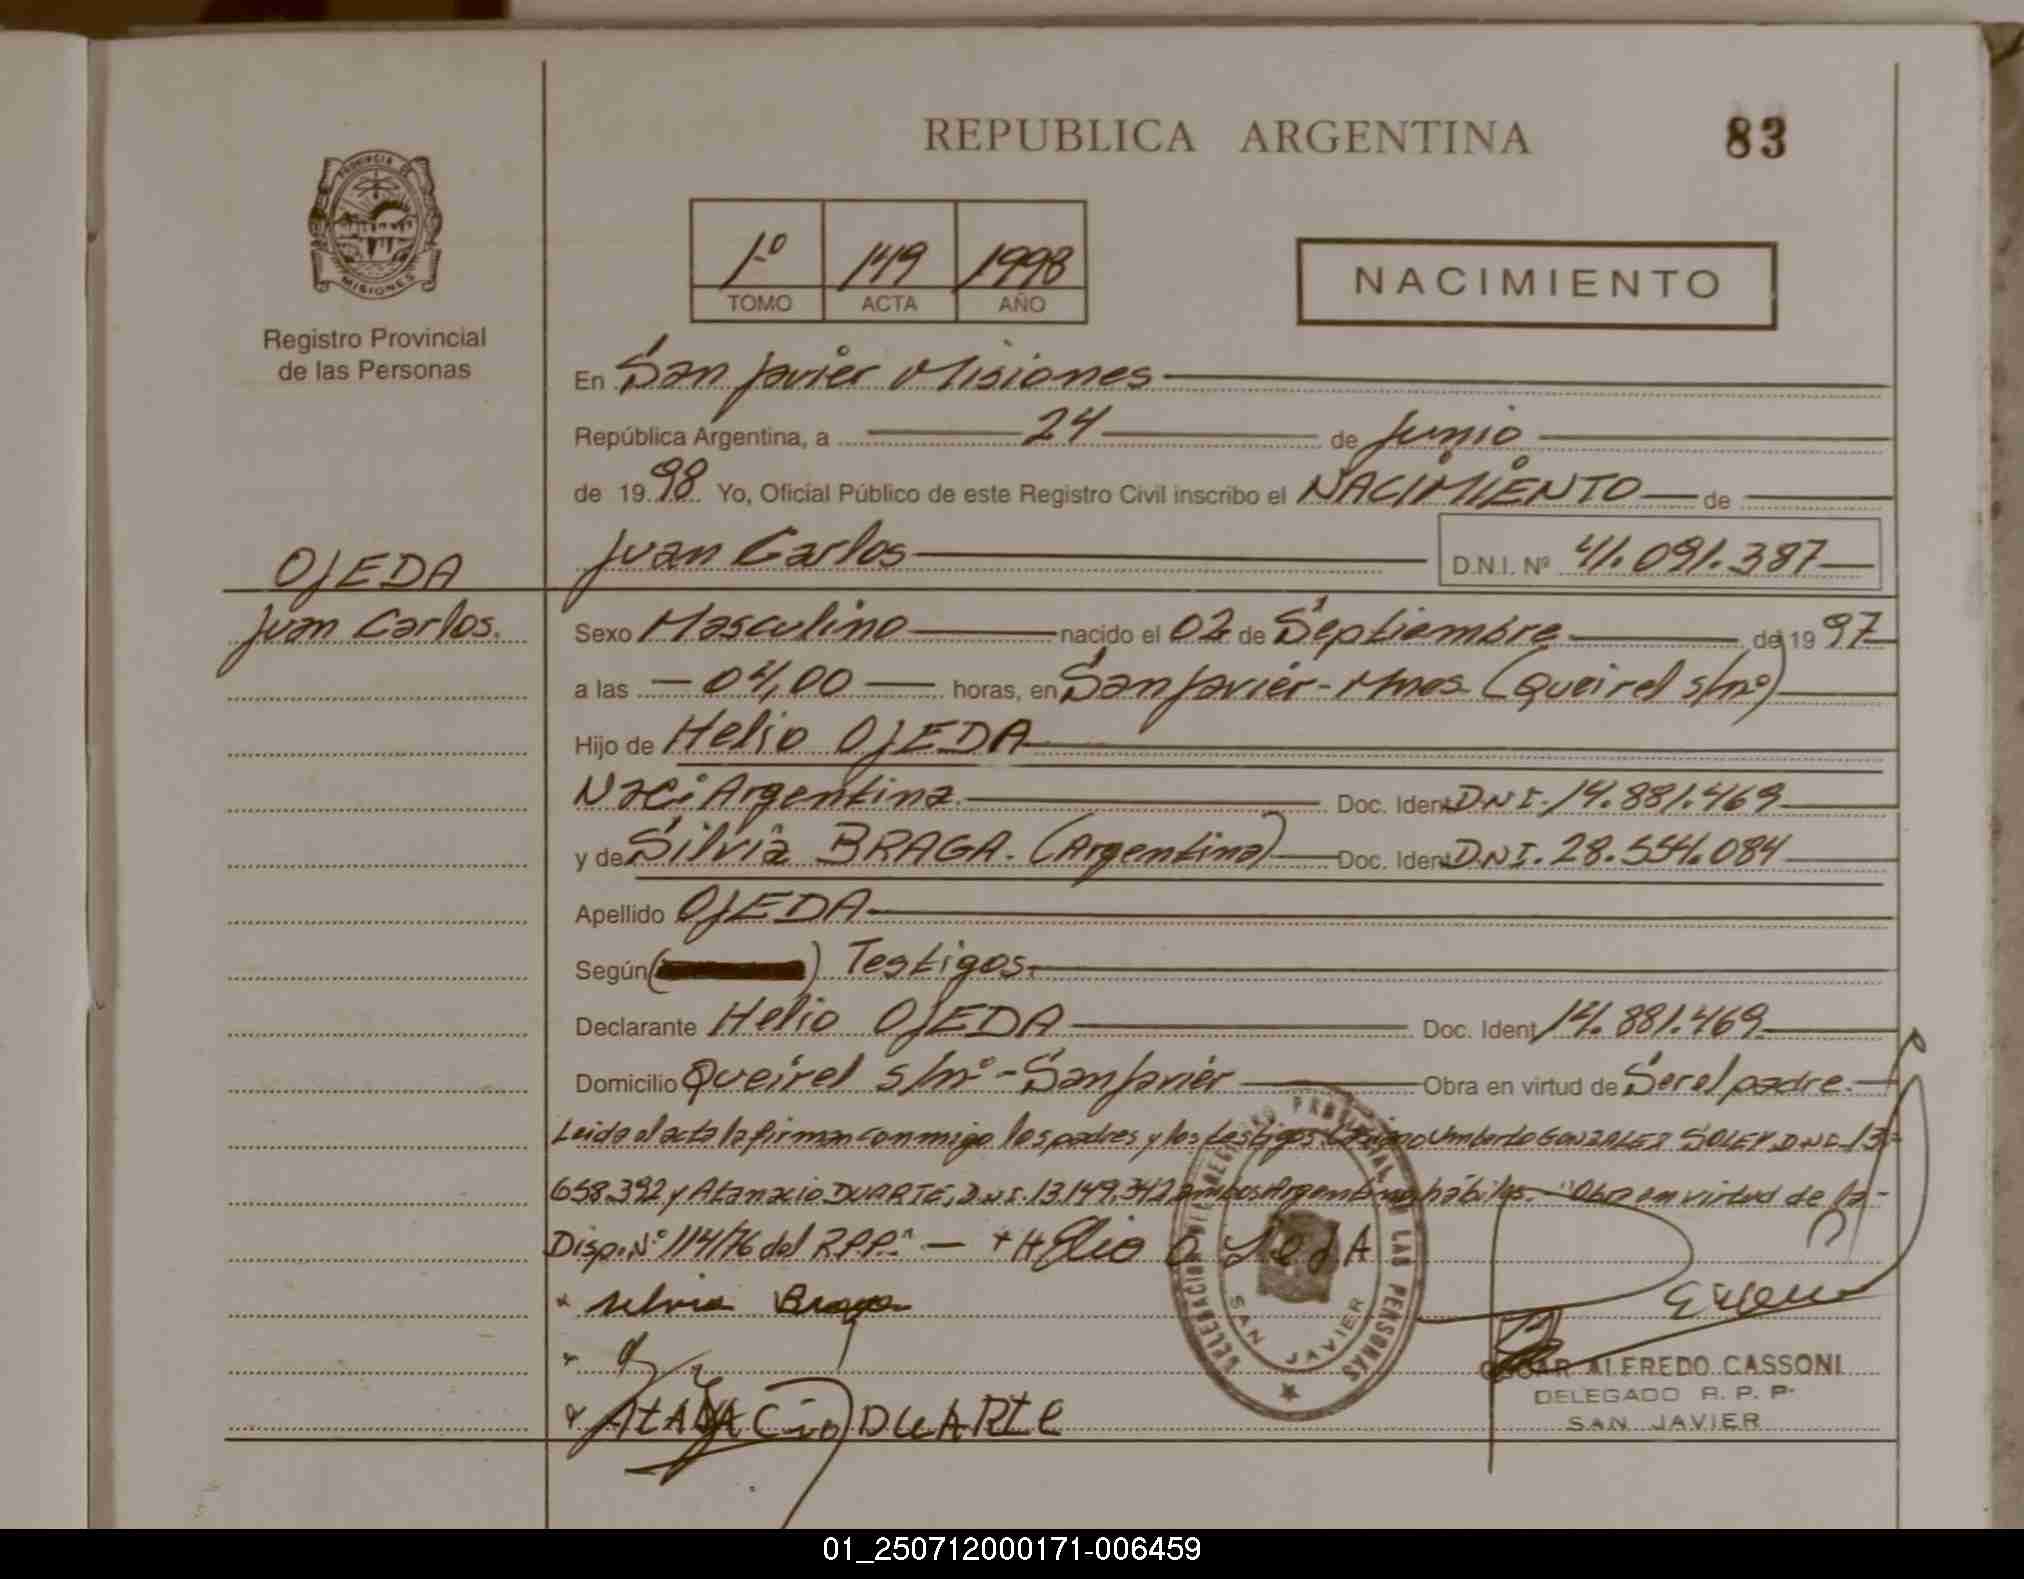 REPUBLICA ARGENTINA
83
PROVINCIA DE
MISIONES
Registro Provincial
de las Personas
1º 149 1998
TOMO ACTA AÑO
NACIMIENTO
En San Javier Misiones
República Argentina, a 24 de Junio
de 1998 Yo, Oficial Público de este Registro Civil inscribo el NACIMIENTO de
OJEDA
Juan Carlos.
Juan Carlos D.N.I. Nº 41.091.387
Sexo Masculino nacido el 02 de Septiembre de 1997
a las 04,00 horas, en San Javier - Mnes. (Queirel s/nº)
Hijo de Helio OJEDA
Naci Argentina. Doc. Ident D.N.I. 14.881.469
y de Silvia BRAGA. (Argentina) Doc. Ident D.N.I. 28.554.084
Apellido OJEDA
Según ( ) Testigos.
Declarante Helio OJEDA Doc. Ident 14.881.469
Domicilio Queirel s/nº - San Javier Obra en virtud de Ser el padre.
Leida el acta la firman conmigo los padres y los testigos Umberto GONZALEZ SOLEY D.N.I. 13-
658.392 y Atanacio DUARTE, D.N.I. 13.149.342 ambos Argentinos hábiles. - "Obra en virtud de la -
Disp. Nº 114/76 del R.P.P." - + Helio OJedA
x silvia Braga
x
x AtANACio DUARte
DELEGACION DEL REGISTRO PROVINCIAL DE LAS PERSONAS
SAN JAVIER
OSCAR ALFREDO CASSONI
DELEGADO R. P. P.
SAN JAVIER
01_250712000171-006459